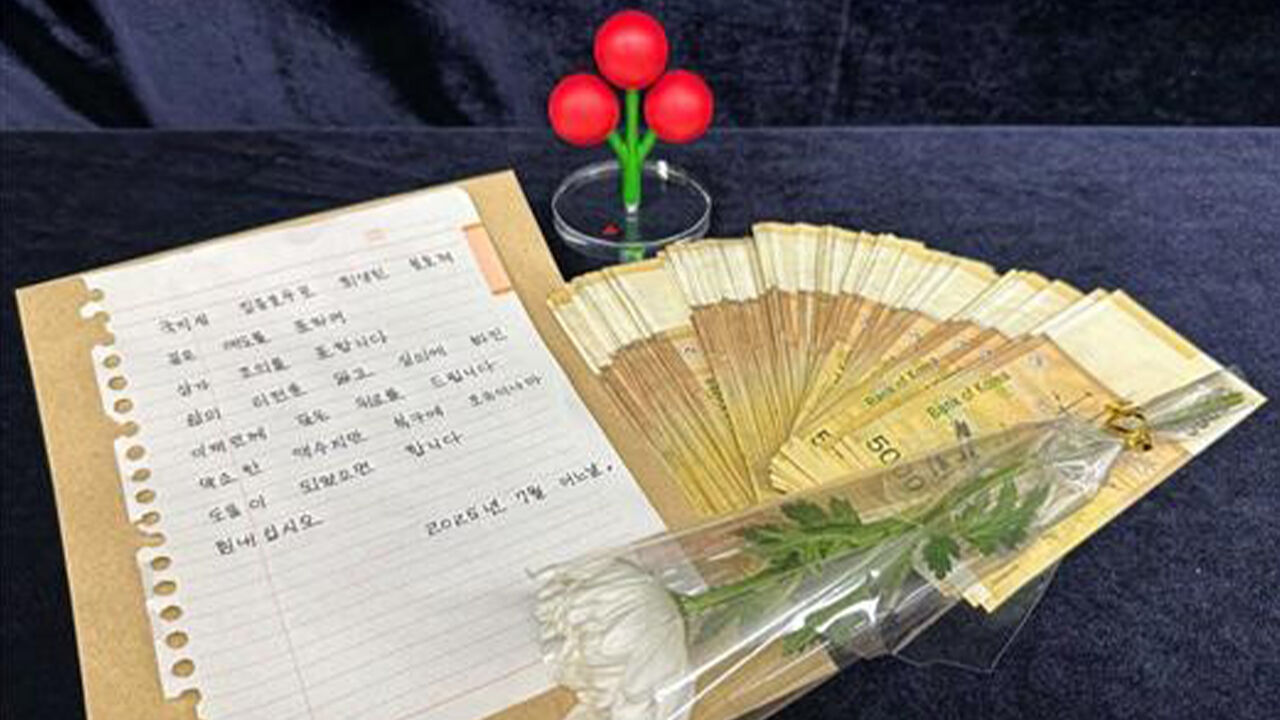 국지성 집중호우로 희생된 분들께
깊은 애도를 표하며
삼가 조의를 표합니다
삶의 터전을 잃고 실의에 빠진
이재민께 깊은 위로를 드립니다
약소한 액수지만 복구에 조금이나마
도움이 되었으면 합니다
힘내십시오 2025년 7월 어느날.
Bank of Korea
Bank of Korea
50